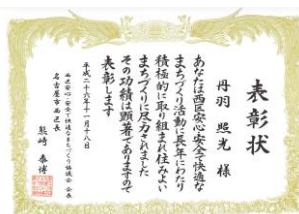 表彰状
丹羽 照光 様
あなたは西区安心安全で快適な
まちづくり活動に長年にわたり
積極的に取り組まれ住みよい
まちづくりに尽力されました
その功績は顕著でありますので
表彰します
平成二十六年十一月十八日
西区安心・安全で快適なまちづくり協議会 会長
名古屋市西区長
熊﨑 泰博